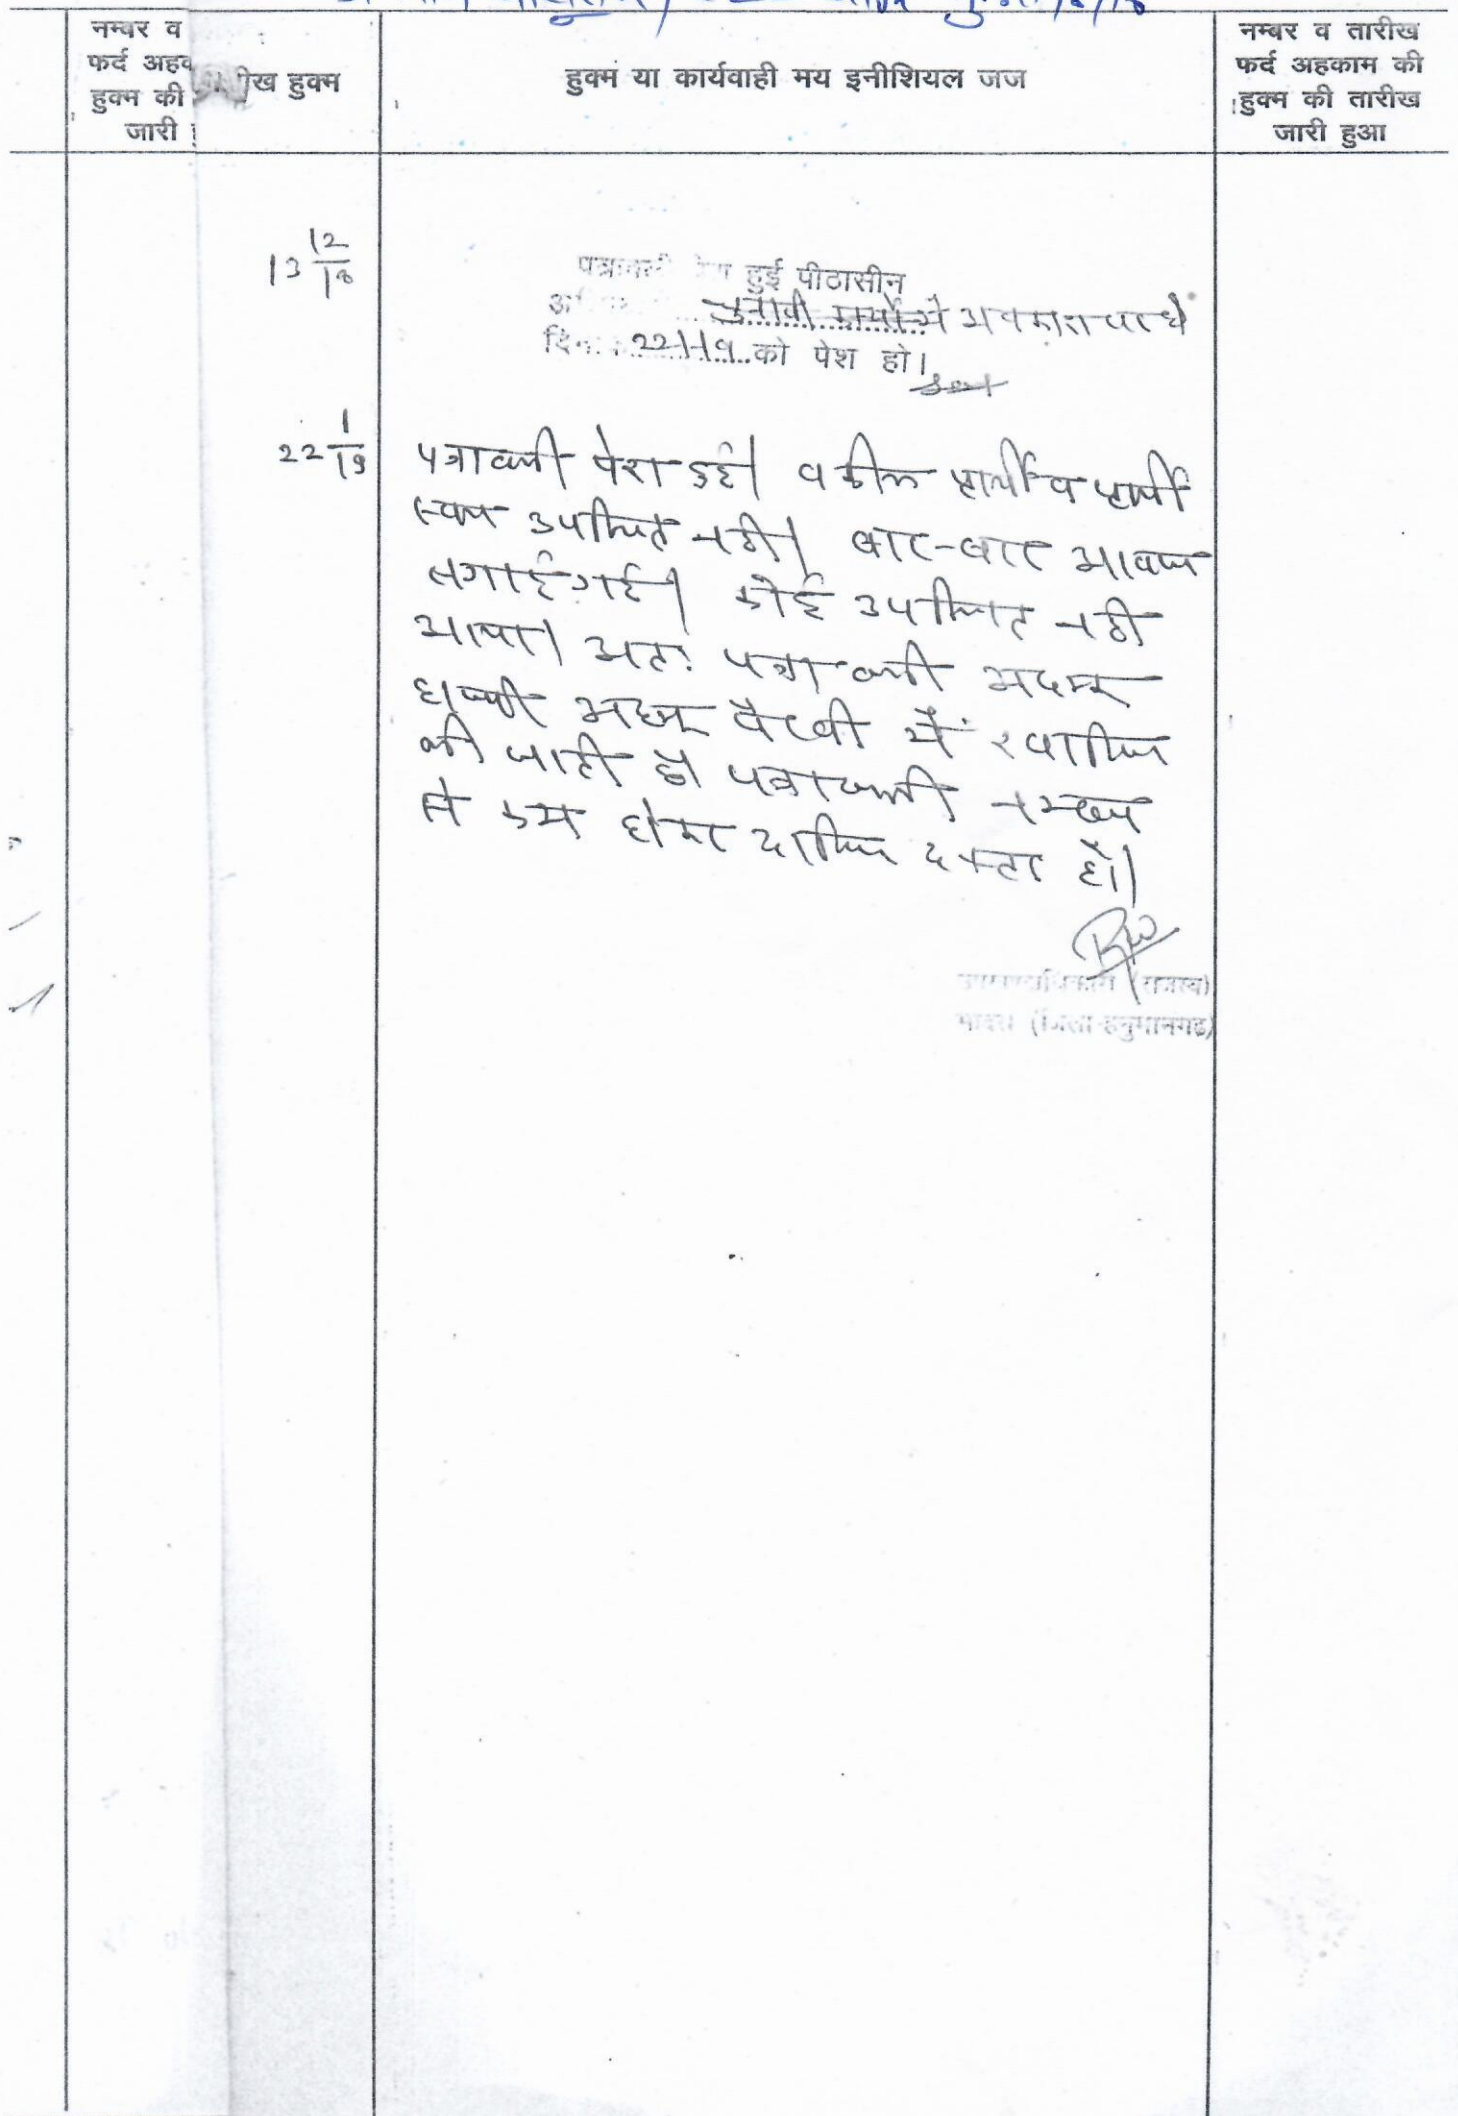 नम्बर व
फर्द अहक
हुक्म की
जारी
ीख हुक्म
हुक्म या कार्यवाही मय इनीशियल जज
नम्बर व तारीख
फर्द अहकाम की
हुक्म की तारीख
जारी हुआ
13 12/18
पत्रावली पेश हुई पीठासीन
चुनावी कार्यो से अवकाश पर थे
22-1-19 को पेश हो।
22 1/19
पत्रावली पेश हुई। वकील प्रार्थी व प्रार्थी
स्वयं उपस्थित नही। बार-बार आवाज
लगाई गई। कोई उपस्थित नही
आया। अतः पत्रावली अदम
हाजरी अदम पैरवी में खारिज
की जाती है पत्रावली नम्बर
से कम होकर दाखिल दफ्तर हो।
उपखण्ड अधिकारी (राजस्व)
भादरा (जिला-हनुमानगढ़)